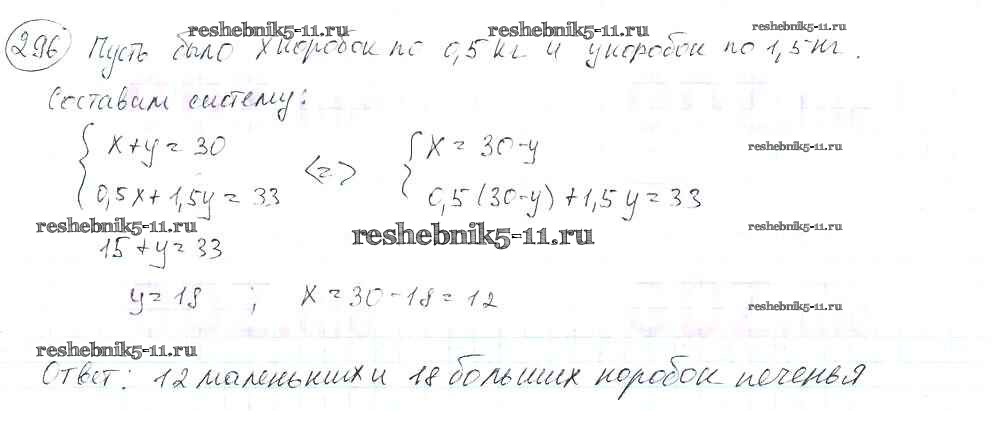 reshebnik5-11.ru reshebnik5-11.ru reshebnik5-11.ru
296 Пусть было x коробок по 0,5 кг и y коробок по 1,5 кг.
Составим систему:
{ x+y=30 <=> { x = 30-y reshebnik5-11.ru
0,5x+1,5y=33 0,5(30-y)+1,5y=33
reshebnik5-11.ru reshebnik5-11.ru reshebnik5-11.ru
15+y=33
y=18 ; x=30-18=12 reshebnik5-11.ru
reshebnik5-11.ru
Ответ: 12 маленьких и 18 больших коробок печенья